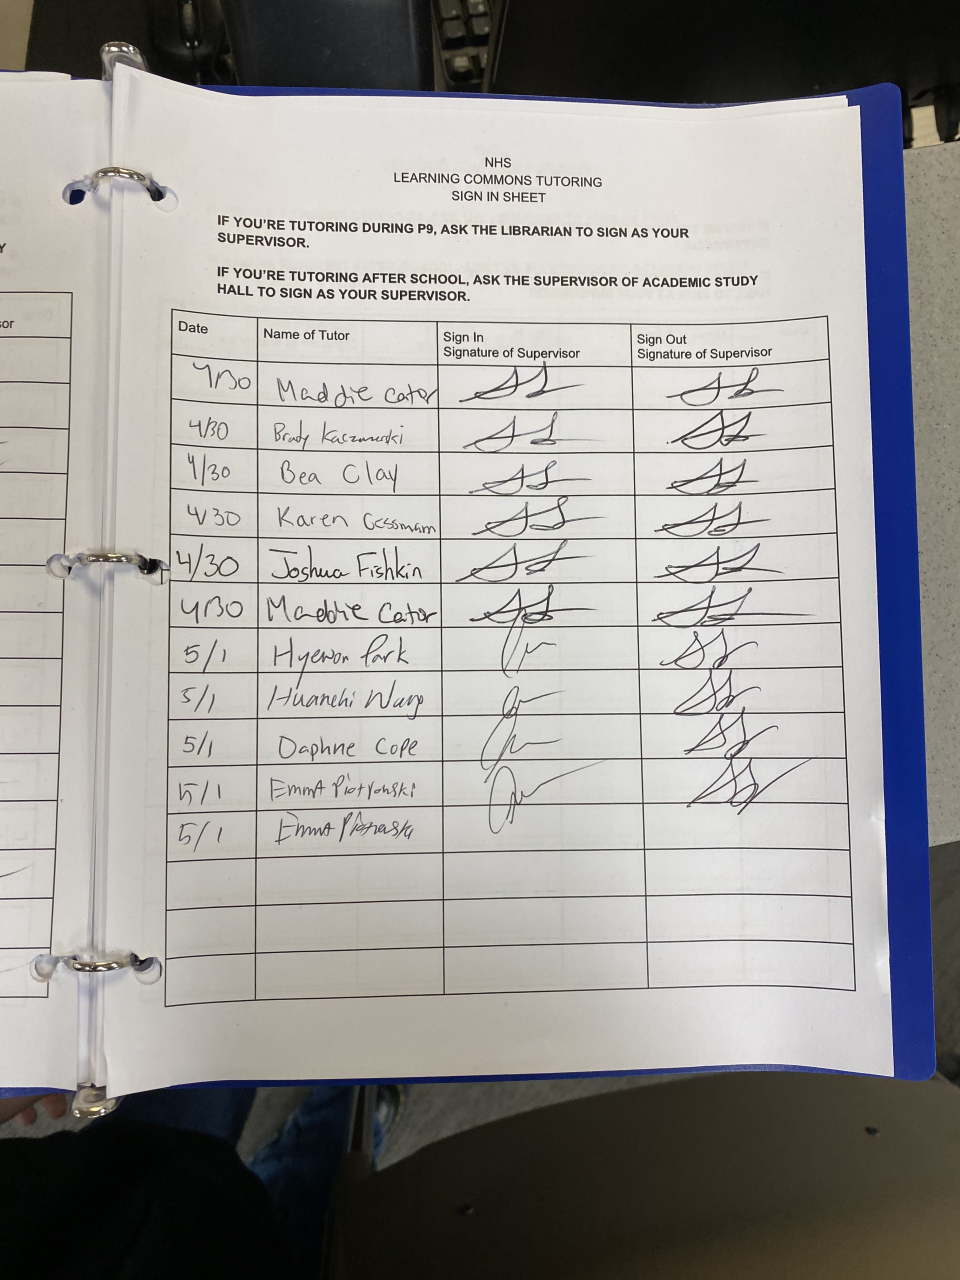 NHS
LEARNING COMMONS TUTORING
SIGN IN SHEET
IF YOU'RE TUTORING DURING P9, ASK THE LIBRARIAN TO SIGN AS YOUR
SUPERVISOR.
IF YOU'RE TUTORING AFTER SCHOOL, ASK THE SUPERVISOR OF ACADEMIC STUDY
HALL TO SIGN AS YOUR SUPERVISOR.
Date Name of Tutor Sign In Sign Out
Signature of Supervisor Signature of Supervisor
4/30 Maddie Cator
4/30 Brady Kaczmarski
4/30 Bea Clay
4/30 Karen Gessmann
4/30 Joshua Fishkin
4/30 Maddie Cator
5/1 Hyewon Park
5/1 Huanchi Wang
5/1 Daphne Cope
5/1 Emma Piotrowski
5/1 Emma